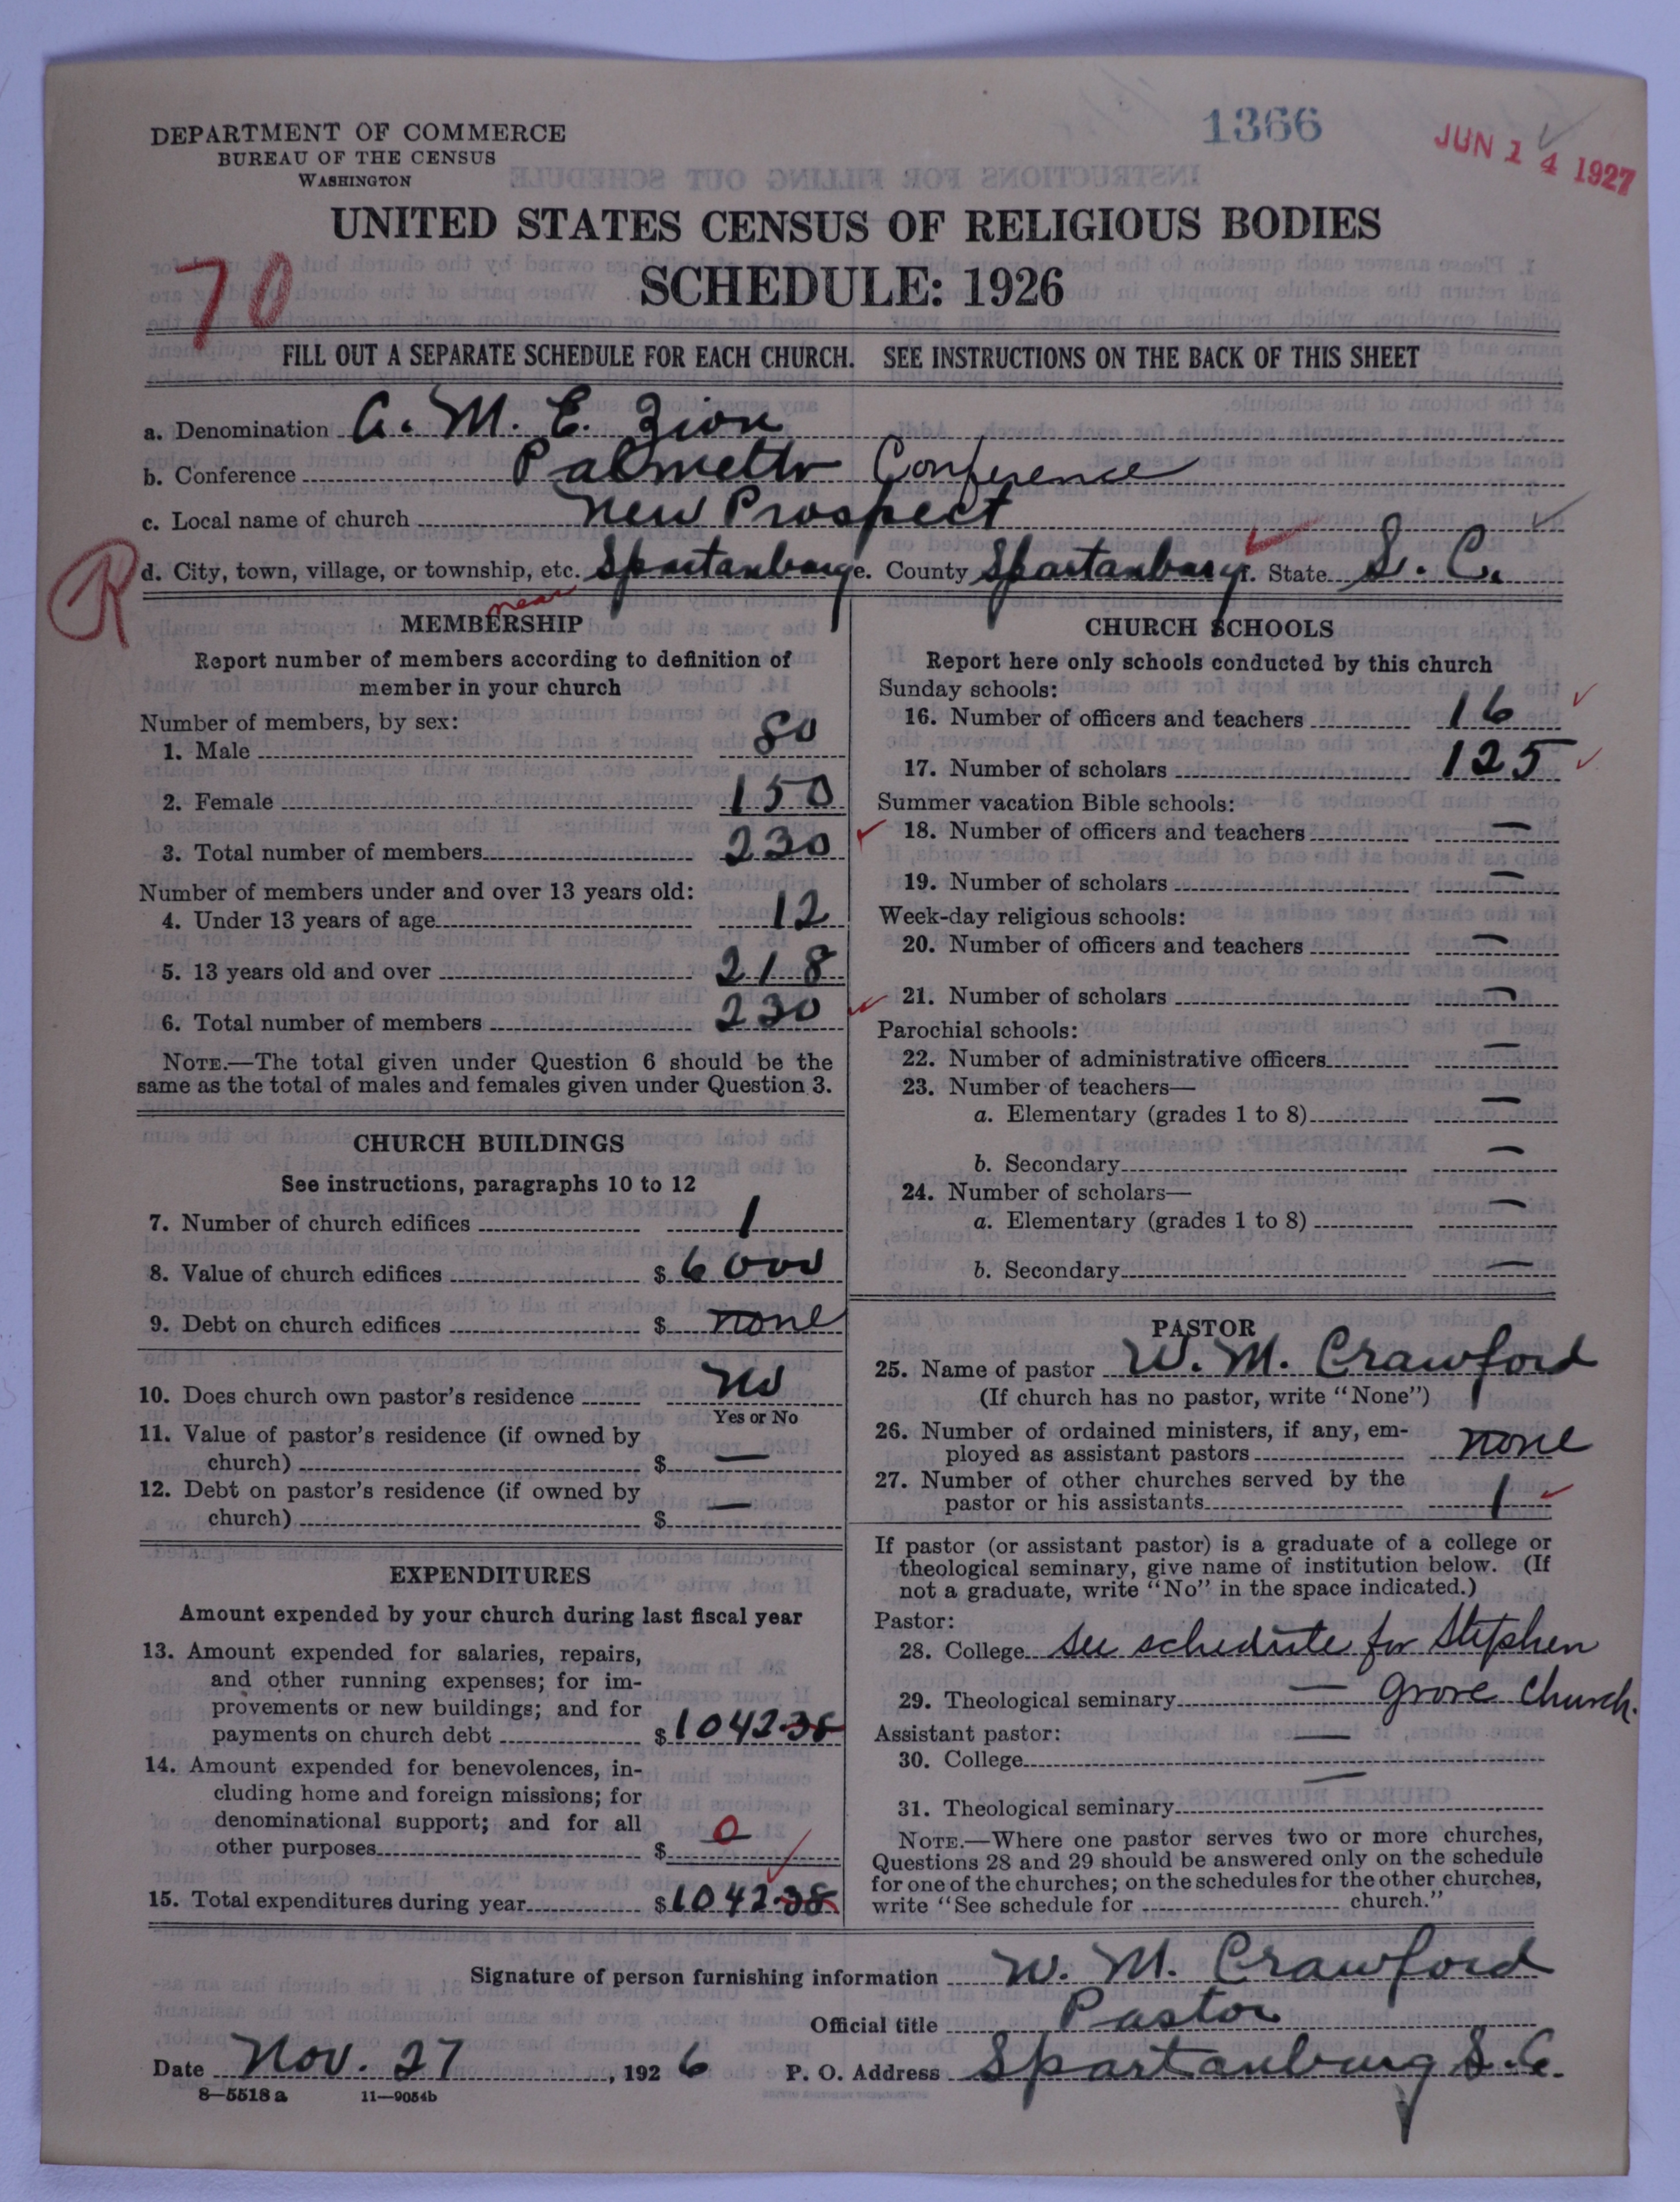 DEPARTMENT OF COMMERCE
BUREAU OF THE CENSUS
WASHINGTON
1366
JUN 14 1927
UNITED STATES CENSUS OF RELIGIOUS BODIES
SCHEDULE: 1926
70
FILL OUT A SEPARATE SCHEDULE FOR EACH CHURCH. SEE INSTRUCTIONS ON THE BACK OF THIS SHEET
a. Denomination A. M. E. Zion
b. Conference Palmetto Conference
c. Local name of church New Prospect
R
d. City, town, village, or township, etc. Spartanburg e. County Spartanburg f. State S. C.
near
MEMBERSHIP
Report number of members according to definition of
member in your church
Number of members, by sex:
1. Male 80
2. Female 150
3. Total number of members 230
Number of members under and over 13 years old:
4. Under 13 years of age 12
5. 13 years old and over 218
6. Total number of members 230
NOTE.—The total given under Question 6 should be the
same as the total of males and females given under Question 3.
CHURCH BUILDINGS
See instructions, paragraphs 10 to 12
7. Number of church edifices 1
8. Value of church edifices $ 6000
9. Debt on church edifices $ none
10. Does church own pastor's residence No
Yes or No
11. Value of pastor's residence (if owned by
church) $ —
12. Debt on pastor's residence (if owned by
church) $ —
EXPENDITURES
Amount expended by your church during last fiscal year
13. Amount expended for salaries, repairs,
and other running expenses; for im-
provements or new buildings; and for
payments on church debt $ 1042.38
14. Amount expended for benevolences, in-
cluding home and foreign missions; for
denominational support; and for all
other purposes $ 0
15. Total expenditures during year $ 1042.38
CHURCH SCHOOLS
Report here only schools conducted by this church
Sunday schools:
16. Number of officers and teachers 16
17. Number of scholars 125
Summer vacation Bible schools:
18. Number of officers and teachers —
19. Number of scholars —
Week-day religious schools:
20. Number of officers and teachers —
21. Number of scholars —
Parochial schools:
22. Number of administrative officers —
23. Number of teachers—
a. Elementary (grades 1 to 8) —
b. Secondary —
24. Number of scholars—
a. Elementary (grades 1 to 8) —
b. Secondary —
PASTOR
25. Name of pastor W. M. Crawford
(If church has no pastor, write "None")
26. Number of ordained ministers, if any, em-
ployed as assistant pastors none
27. Number of other churches served by the
pastor or his assistants 1
If pastor (or assistant pastor) is a graduate of a college or
theological seminary, give name of institution below. (If
not a graduate, write "No" in the space indicated.)
Pastor:
28. College See schedule for Stephen
29. Theological seminary — Grove Church.
Assistant pastor:
30. College —
31. Theological seminary —
NOTE.—Where one pastor serves two or more churches,
Questions 28 and 29 should be answered only on the schedule
for one of the churches; on the schedules for the other churches,
write "See schedule for church."
Signature of person furnishing information W. M. Crawford
Official title Pastor
Date Nov. 27, 1926 P. O. Address Spartanburg S. C.
8—5518 a 11—9054b